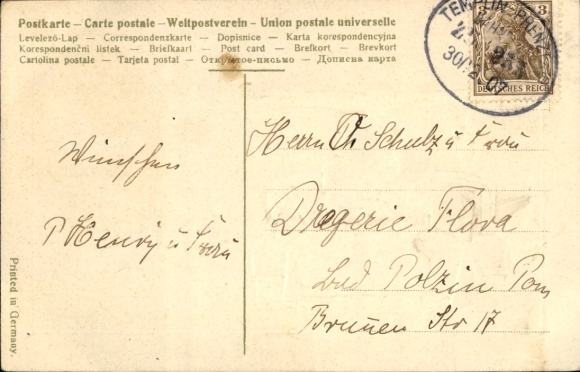 Postkarte – Carte postale – Weltpostverein – Union postale universelle
Levelező-Lap — Correspondenzkarte — Dopisnice — Karta korespondencyjna
Korespondenční lístek — Briefkaart — Post card — Brefkort — Brevkort
Cartolina postale — Tarjeta postal — Открытое-письмо — Дописна карта
3
DEUTSCHES REICH
TEMPLIN-PRENZ
30.12.07
Wünschen
P Henry u Frau
Herrn Th Schulz u Frau
Drogerie Flora
bad Polzin Pom
Brunnen Str 17
Printed in Germany.